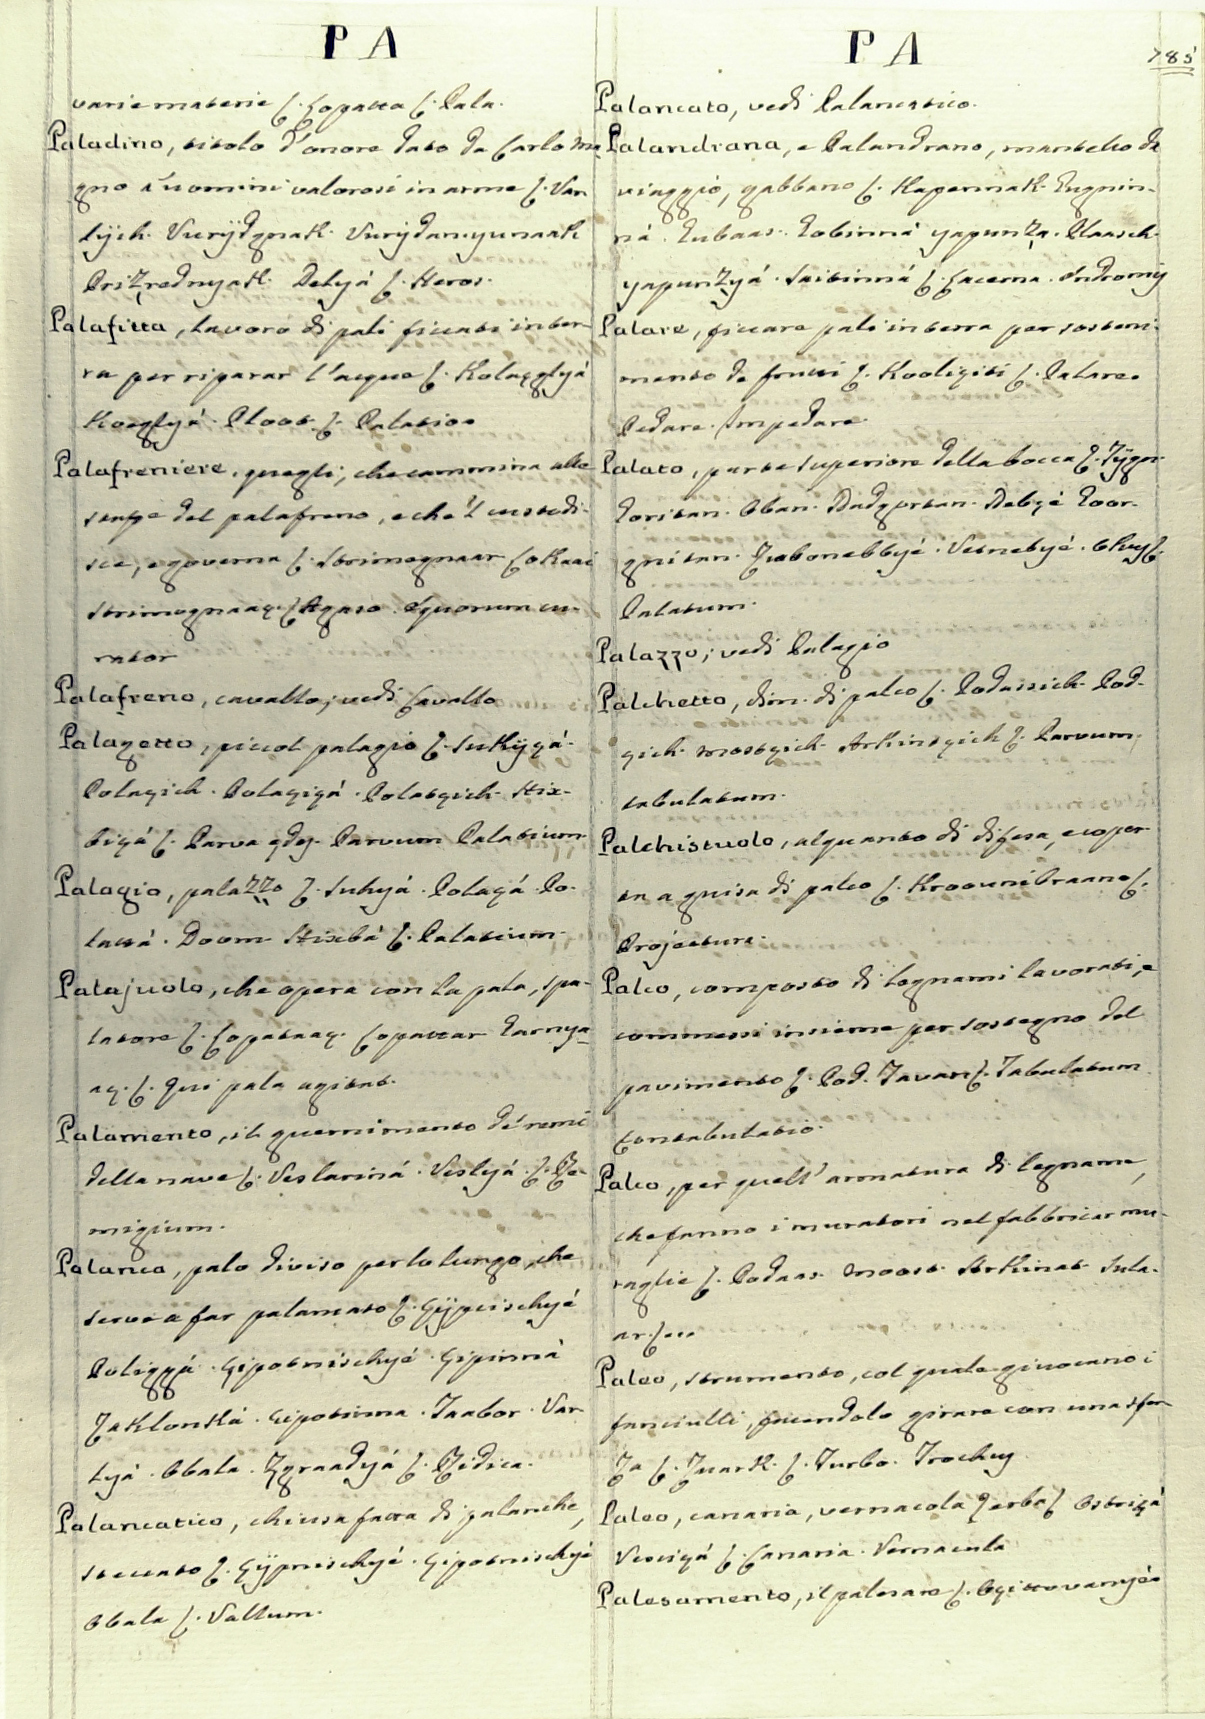 PA
varie materie £. Lopatta £. Pala.
Paladino, titolo d'onore dato da Carlo Ma
gno à uomini valorosi in arme £. Var
lÿch. Vurÿdgnak. Vurÿdan. yunaak
Prizrednyak. Delyá £. Heros.
Palafitta, lavoro di pali ficcati in ter-
ra per riparar l'acque £. Kolagglyá
Koeglyá. Ploot. £. Palatio.
Palafreniere, quegli, che cammina alle
staffe del palafreno, e che 'l custodi-
sce, e governa £. Strimegnaar £okaai
Strimognaaç. £ Agaso. Equorum cu-
rator
Palafreno, cavallo, vedi Cavallo
Palagetto, piccol palagio £. Sukÿçá.
Polaçich. Polaçiçá. Polatçich. Hix-
biçá £. Parva ędes. Parvum Palatium.
Palagio, palazzo £. Suhyá. Polaçá. Po-
lattá. Doom. Hixbá £. Palatium.
Palajuolo, che opera con la pala, spa-
latore £. Lopataaç. Lopattar Earnya-
aç. £. Qui pala agitat.
Palamento, il guernimento de' remi
della nave £. Veslariná. Veslyá. £. Re-
migium.
Palanca, palo diviso per lo lungo, che
serve a far palancato £. Gÿpcischyé
Poliggá. Gipotnischyé. Gipinná
Zaklonká. Gipotinna. Taabor. Var
lyá. Obala. Zgraadyá £. Ridica.
Palancatico, chiusa fatta di palanche,
steccato £. Gÿpnischyé. Gipotnischyé
Obala £. Vallum.
PA
785
Palancato, vedi Palancatico.
Palandrana, e Palandrano, mantello da
viaggio, gabbano £. Kapermak. Eugnin-
ná. Eubaas. Eobinná yapunza. Plaasch.
yapunzyá. Saitinná £. Lacerna. Endromis
Palare, ficcare pali in terra per sosteni-
mento de frutti £. Kooligiti £. Palare.
Pedare. Impedare.
Palato, parte superiore della bocca £. Tÿgn.
Eoritan. Oban. Dudgortan. Debgé Eoor-
gnitan. Zubonebbyé. Vetnebyé. Okuy £.
Palatum.
Palazzo; vedi Palagio
Palchetto, dim. di palco £. Podassich. Pod-
çich. mostçich. Arkinsçich £. Parvum,
tabulatum.
Palchistuolo, alquanto di difesa, e coper-
ta a guisa di palco £. Kroounibraano £.
Projectura.
Palco, composto di legnami lavorati, e
commessi insieme per sostegno del
pavimento £. Pod. Tavan £. Tabulatum
Contabulatio.
Palco, per quell' armatura di legname,
che fanno i muratori nel fabbricar mu-
raglie £. Podaas. Moost. Skinat. Sula-
ar £...
Paleo, strumento, col quale giuocano i
fanciulli, facendolo girare con una sfer
za £. Zuark. £. Turbo. Trochus
Paleo, canaria, vernacola Zerba £ Ostriçá
Vesiçá £. Canaria. Vernacula
Palesamento, il palesare £. Oçittovanyé.